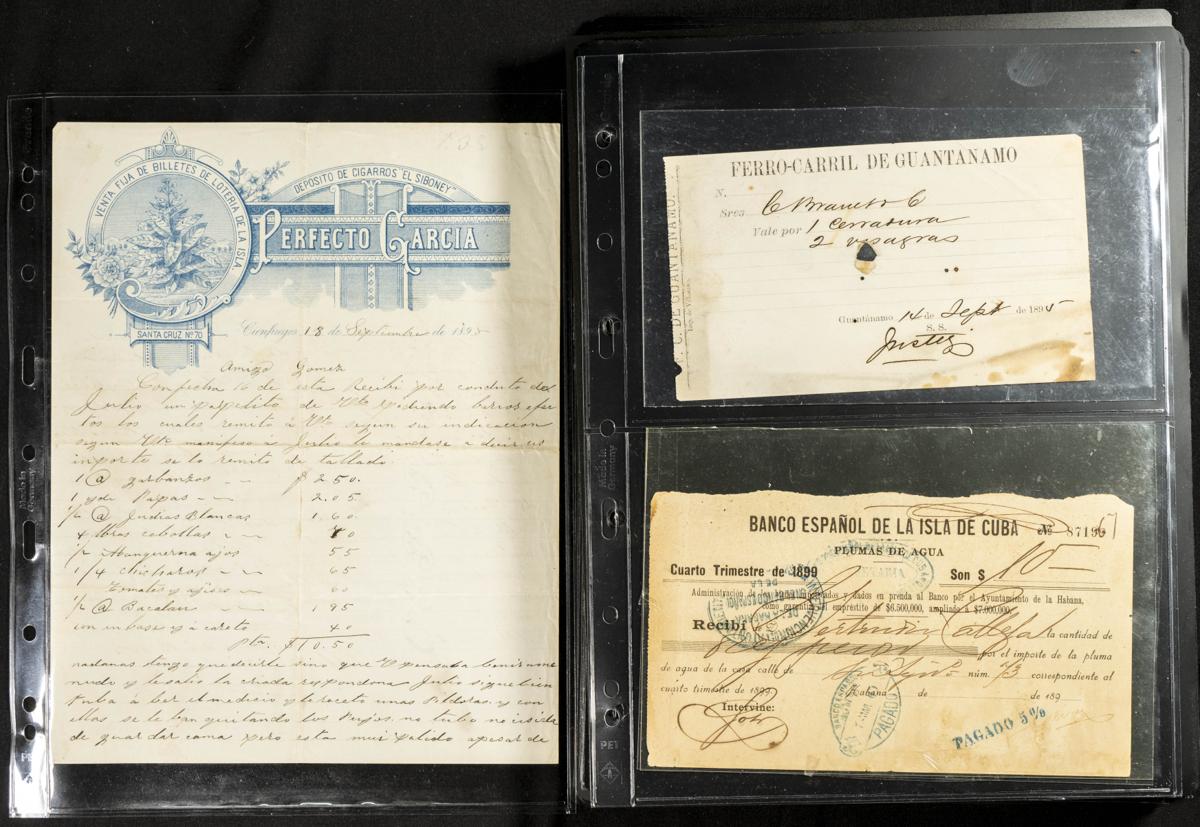 VENTA FIJA DE BILLETES DE LOTERIA DE LA ISLA
DEPOSITO DE CIGARROS "EL SIBONEY"
PERFECTO GARCIA
SANTA CRUZ Nº 70
Cienfuegos 18 de Septiembre de 1895
Amigo Gomez
Con fecha 16 de esta Recibi por conducto de
Julio un papelito de Vto pidiendo
los los cuales remito à Vto segun su indicacion
segun Vto manifeso à Julio le mandase a decir
importe se lo remito de tallado
1 @ garbanzos $ 2 50
1 Papas 2.05
1/2 @ Judias Blancas 1 60
4 lbras cebollas 40
1/2 ajos 55
1/4 chicharos 65
Tomates y ajises 60
1/2 @ Bacalau 1 95
con inbase y à careto 40
Pta. $10.50
nadamas tengo que decirle sino que
nudo y le salio la criada respondona Julio sigue bien
tuba à ber el medico y le receto unas Pildoras y con
ellas se le ban quitando los no tubo
de guardar cama pero esta mui palido apesar de
FERRO-CARRIL DE GUANTANAMO
F. C. DE GUANTANAMO.
N.
Sres C Brauet & C
Vale por 1 Cerradura
2 visagras
Guantánamo 14 de Sept de 1895
S. S.
BANCO ESPAÑOL DE LA ISLA DE CUBA
Nº 87196
PLUMAS DE AGUA
Cuarto Trimestre de 1899
Son $ 10-
Administración de y dados en prenda al Banco por el Ayuntamiento de la Habana,
como garantía empréstito de $6.500,000, ampliado a $7.000,000.
Recibí la cantidad de
pesos por el importe de la pluma
de agua de la casa calle de núm. 73 correspondiente al
cuarto trimestre de 1899.
Habana de de 189
Intervine:
PAGADO
PAGADO 5%
Made in Germany
Made in Germany
PET
PET